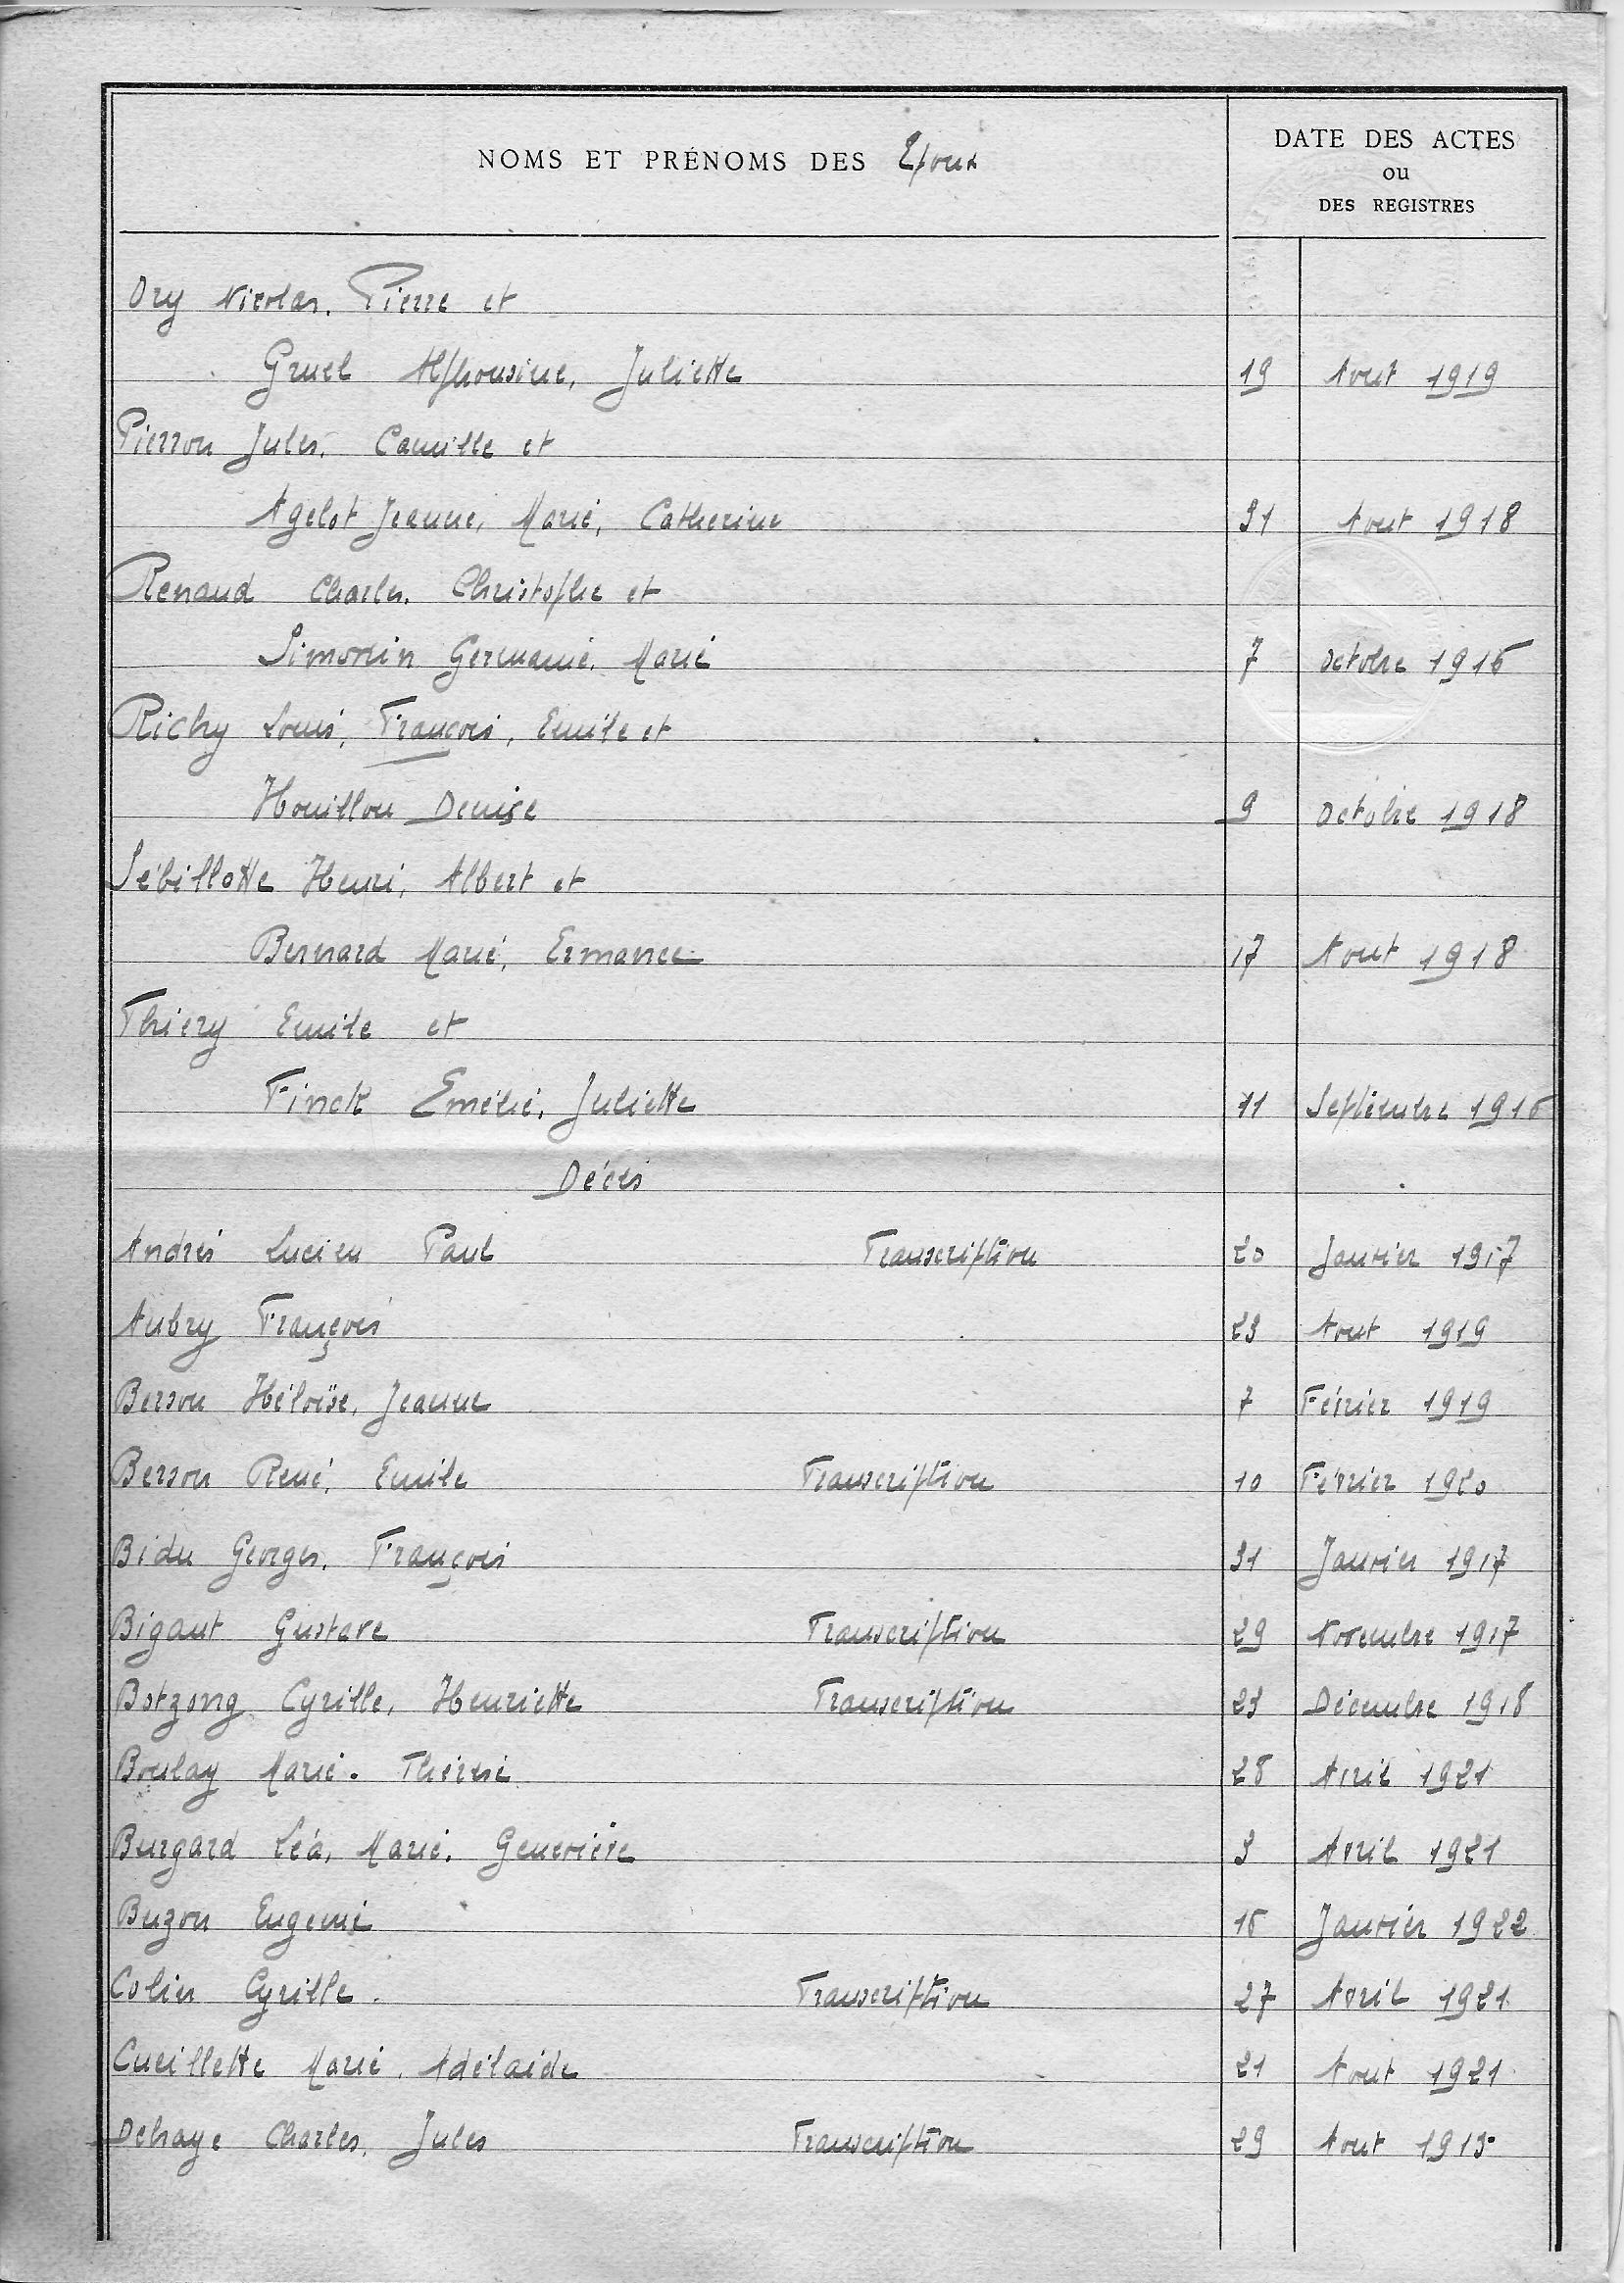 NOMS ET PRÉNOMS DES Epoux
DATE DES ACTES
OU
DES REGISTRES
Ory Nicolas, Pierre et
Gruel Alphonsine, Juliette 19 Aout 1919
Pierron Jules, Camille et
Agelot Jeanne, Marie, Catherine 31 Aout 1918
Renaud Charles, Christophe et
Simonin Germaine, Marie 7 octobre 1916
Richy Louis, François, Emile et
Houillon Denise 9 Octobre 1918
Sébillotte Henri, Albert et
Bernard Marie, Ermance 17 Aout 1918
Thiery Emile et
Finck Emélie, Juliette 11 Septembre 1916
Décès
André Lucien Paul Transcription 20 Janvier 1917
Aubry François 23 Aout 1919
Berson Héloïse, Jeanne 7 Février 1919
Berson René, Emile Transcription 10 Février 1920
Bidu Georges, François 31 Janvier 1917
Bigaut Gustave Transcription 29 Novembre 1917
Botzong Cyrille, Henriette Transcription 23 Décembre 1918
Boulay Marie. Thérèse 28 Avril 1921
Burgard Léa, Marie, Geneviève 3 Avril 1921
Buzon Eugenie Janvier 1922
Colin Cyrille. Transcription 27 Avril 1921
Cueillette Marie, Adélaide 21 Aout 1921
Dehaye Charles, Jules Transcription 29 Aout 1915